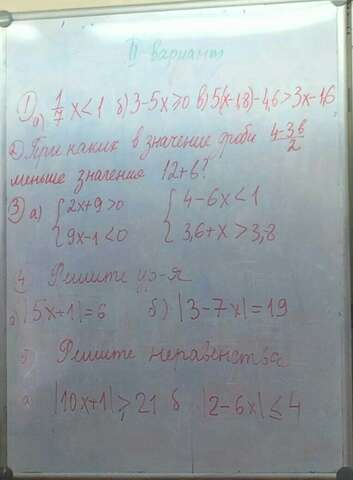 II вариант
① а) 1/7 x < 1 б) 3-5x ≥ 0 в) 5(x-1,8)-4,6 > 3x-1,6
② При каких в значение дроби (4-3в)/2
меньше значения 12+в?
③ а) { 2x+9 > 0 { 4-6x < 1
{ 9x-1 < 0 { 3,6+x > 3,8
4 Решите ур-я
а) |5x+1| = 6 б) |3-7x| = 19
5 Решите неравенства
а |10x+1| ≥ 21 б |2-6x| ≤ 4